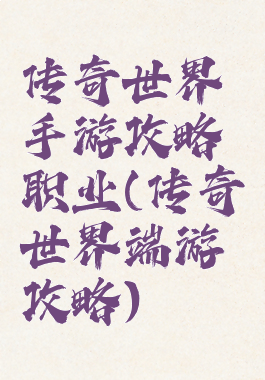 传奇世界
手游攻略
职业(传奇
世界端游
攻略)